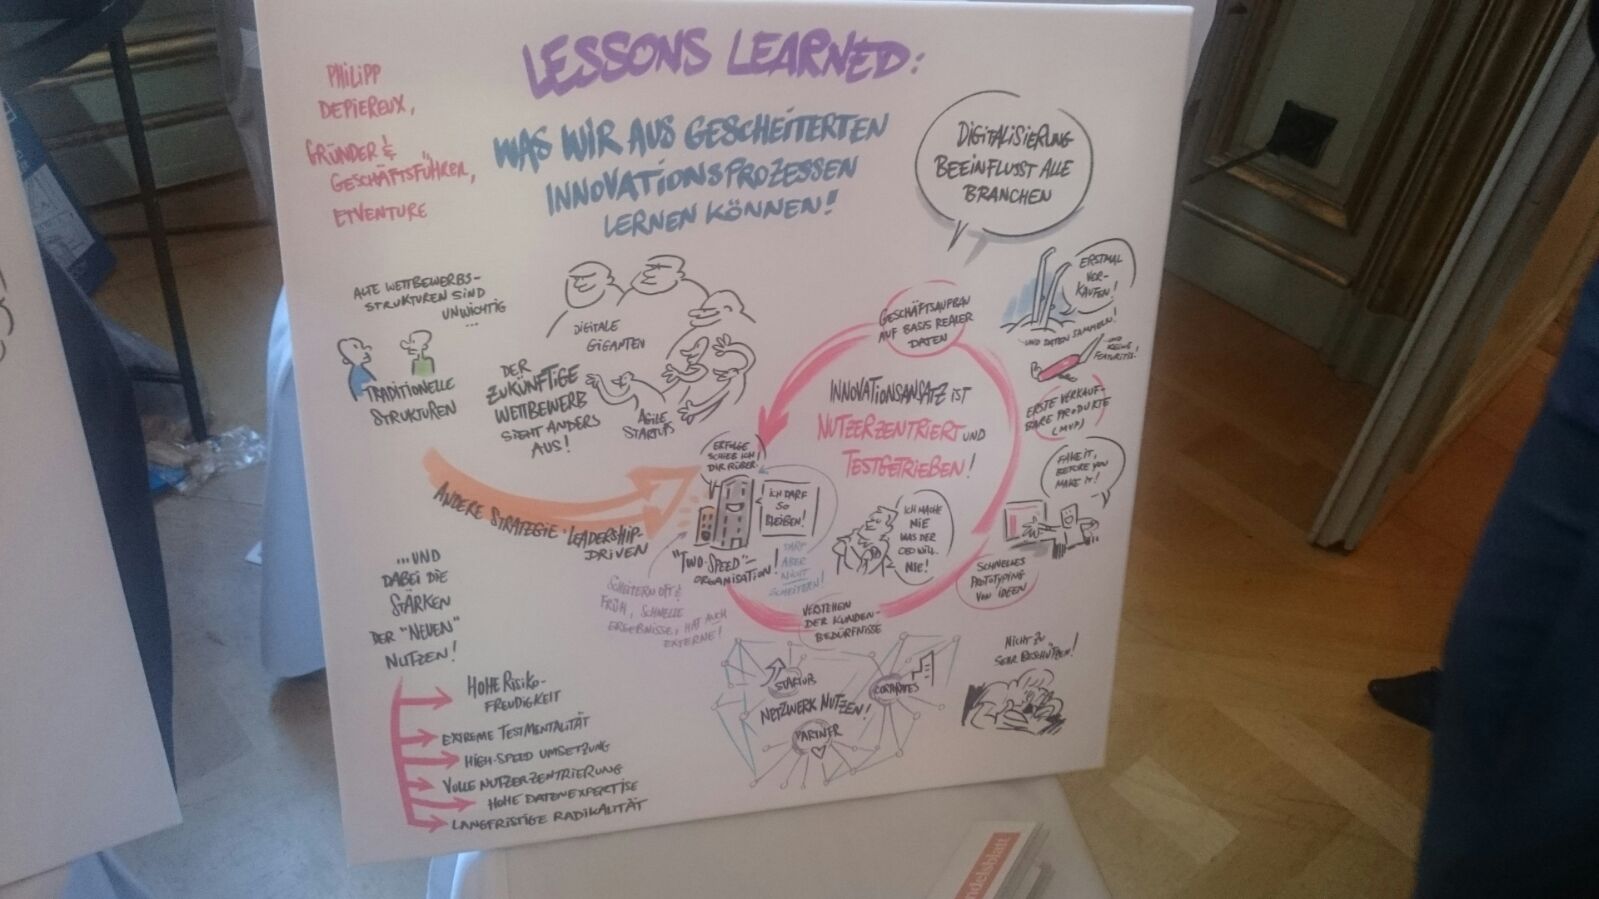 LESSONS LEARNED:
WAS WIR AUS GESCHEITERTEN
INNOVATIONSPROZESSEN
LERNEN KÖNNEN!
PHILIPP
DEPIEREUX,
GRÜNDER &
GESCHÄFTSFÜHRER,
ETVENTURE
DIGITALISIERUNG
BEEINFLUSST ALLE
BRANCHEN
ALTE WETTBEWERBS-
STRUKTUREN SIND
UNWICHTIG
...
TRADITIONELLE
STRUKTUREN
DIGITALE
GIGANTEN
DER
ZUKÜNFTIGE
WETTBEWERB
SIEHT ANDERS
AUS!
AGILE
STARTUPS
GESCHÄFTSAUFBAU
AUF BASIS REALER
DATEN
ERSTMAL
VER-
KAUFEN!
UND DATEN SAMMELN!
UND
KEINE
FEATURITIS!
ERSTE VERKAUF-
BARE PRODUKTE
(MVP)
INNOVATIONSANSATZ IST
NUTZERZENTRIERT UND
TESTGETRIEBEN!
FAKE IT,
BEFORE YOU
MAKE IT!
SCHNELLES
PROTOTYPING
VON IDEEN
ICH MACHE
NIE
WAS DER
CEO WILL.
NIE!
VERSTEHEN
DER KUNDEN-
BEDÜRFNISSE
ERFOLGE
SCHIEB ICH
DIR RÜBER!
ICH DARF
SO
BLEIBEN!
"TWO-SPEED"-
ORGANISATION!
DARF
ABER
NICHT
SCHEITERN!
SCHEITERN OFT &
FRÜH, SCHNELLE
ERGEBNISSE, HAT AUCH
EXTERNE!
ANDERE STRATEGIE: LEADERSHIP-
DRIVEN
...UND
DABEI DIE
STÄRKEN
DER "NEUEN"
NUTZEN!
HOHE RISIKO-
FREUDIGKEIT
EXTREME TESTMENTALITÄT
HIGH-SPEED UMSETZUNG
VOLLE NUTZERZENTRIERUNG
HOHE DATENEXPERTISE
LANGFRISTIGE RADIKALITÄT
STARTUPS
CORPORATES
NETZWERK NUTZEN!
PARTNER
NICHT ZU
SEHR BESCHÜTZEN!
ndelsblatt